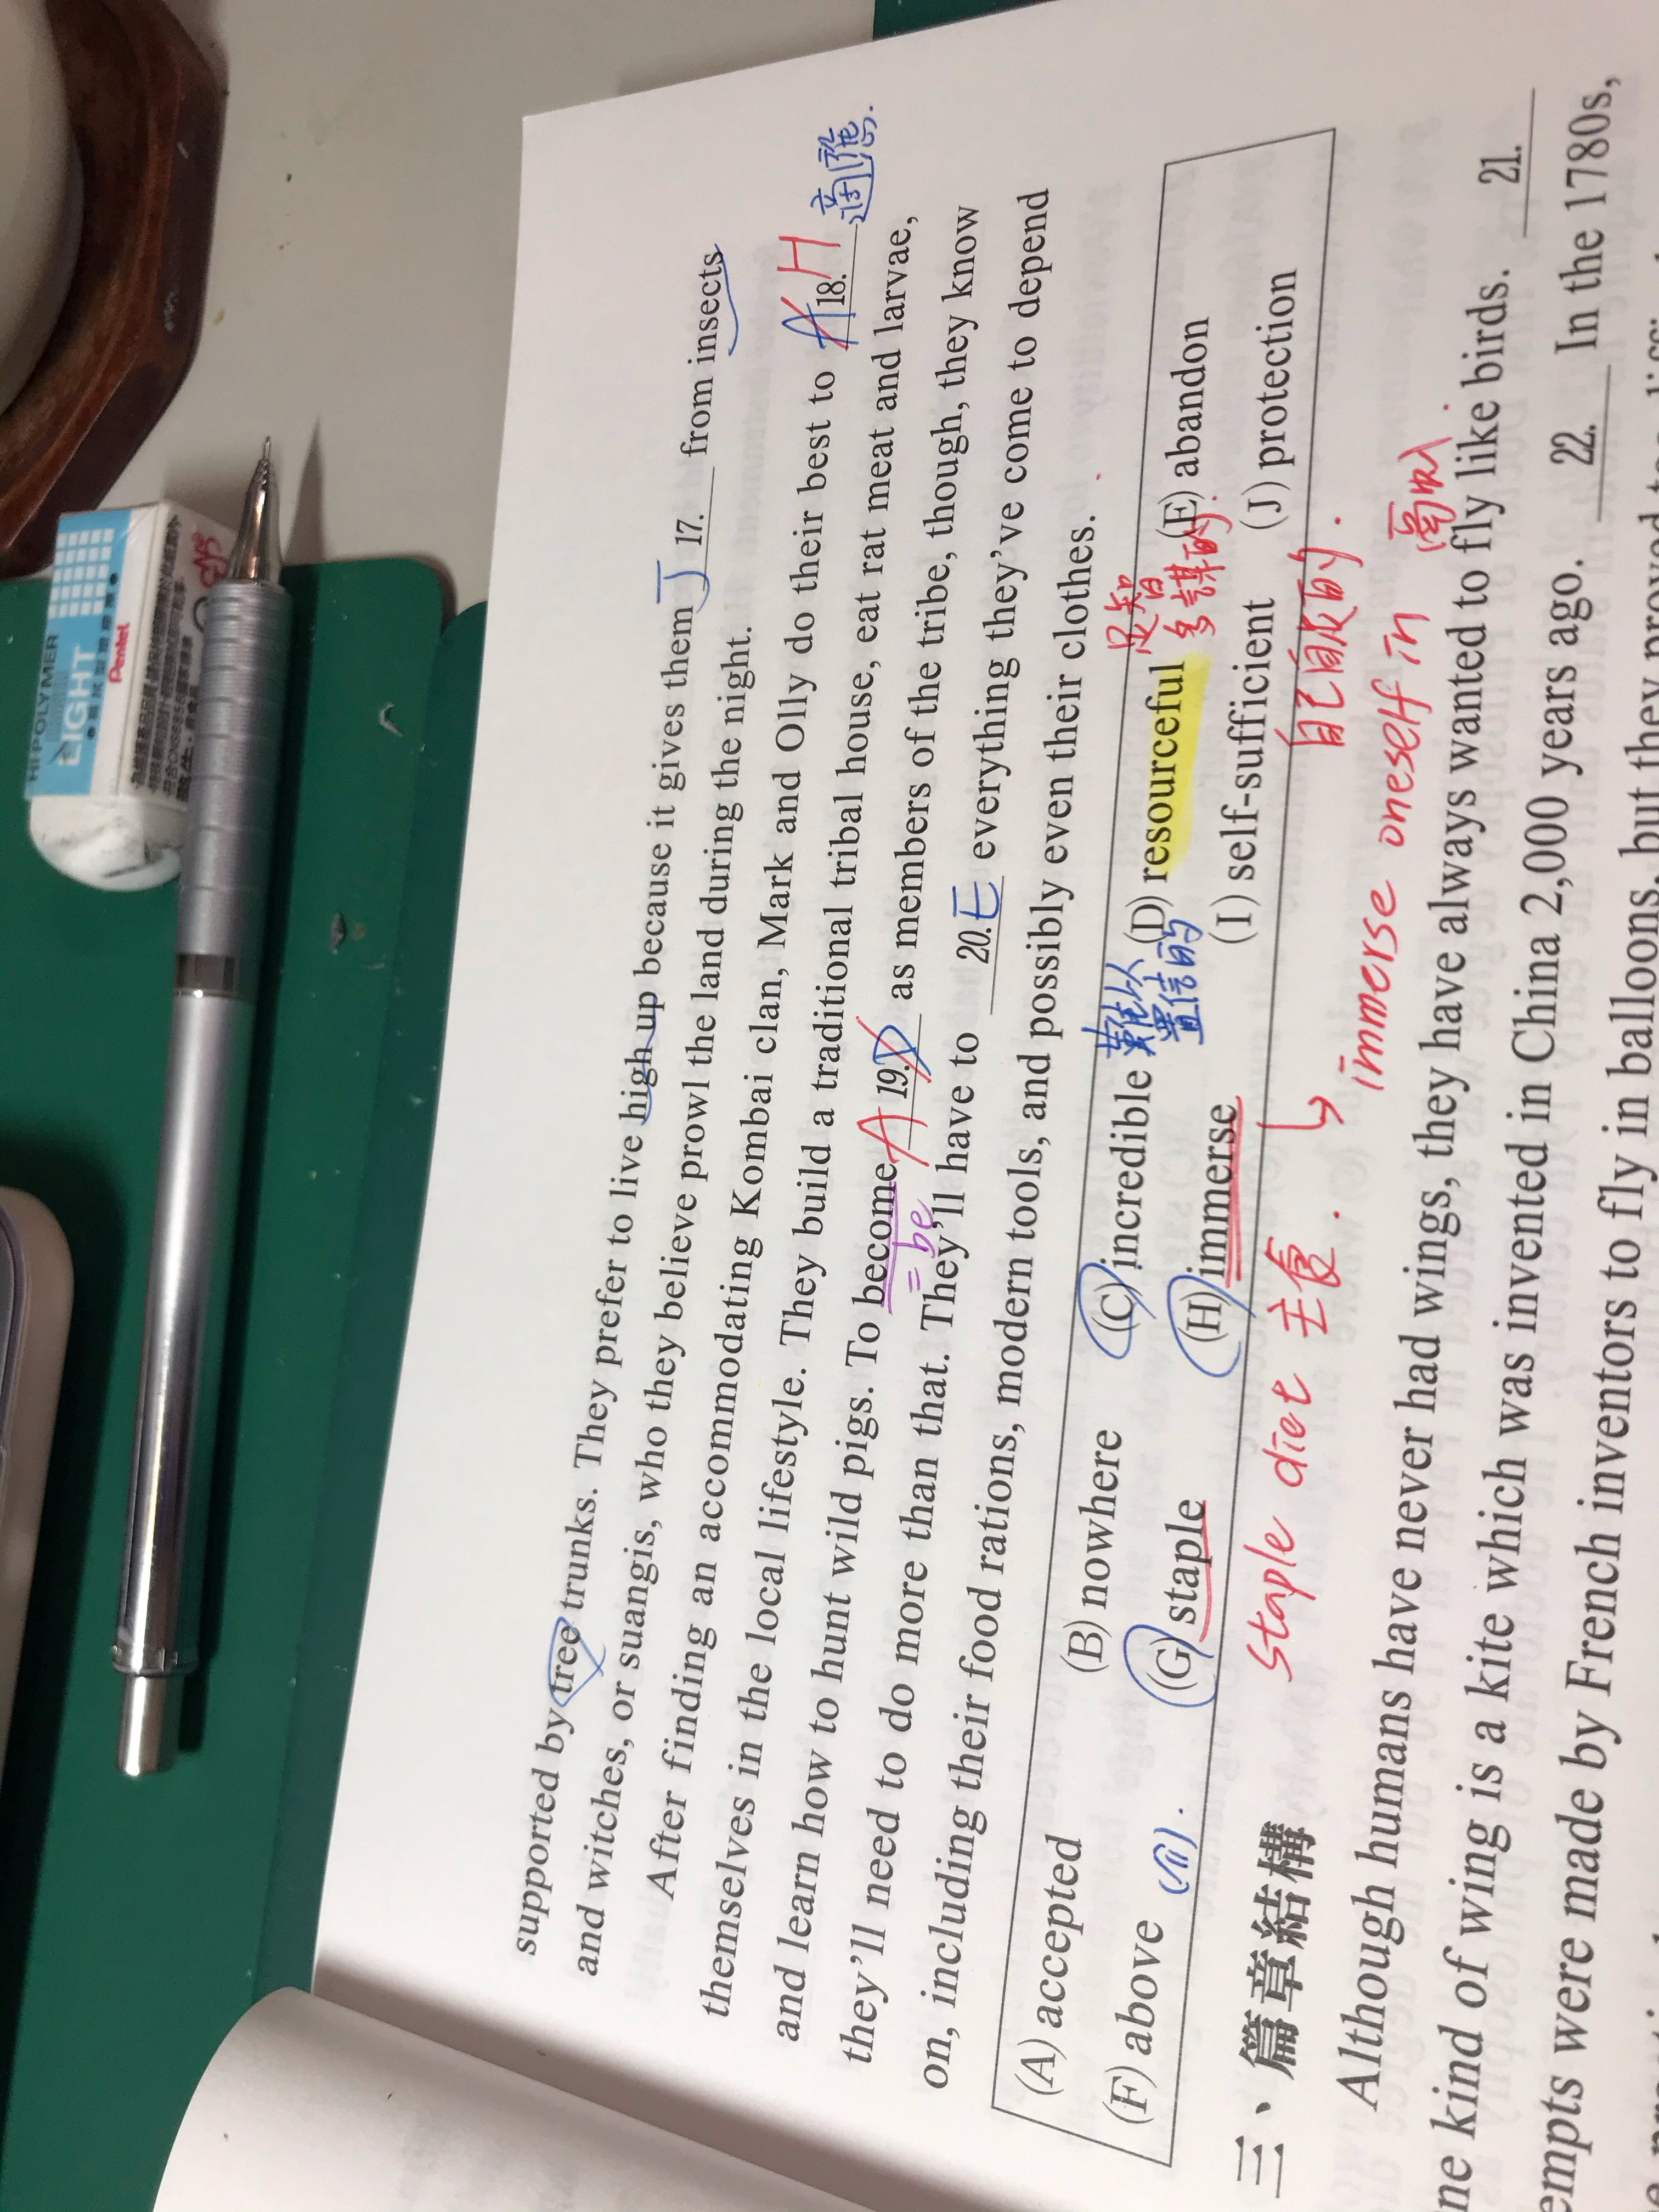 HI-POLYMER
LIGHT
Pentel
supported by tree trunks. They prefer to live high up because it gives them J 17. from insects
and witches, or suangis, who they believe prowl the land during the night.
After finding an accommodating Kombai clan, Mark and Olly do their best to A H 18. 適應.
themselves in the local lifestyle. They build a traditional tribal house, eat rat meat and larvae,
and learn how to hunt wild pigs. To become A 19. D as members of the tribe, though, they know
= be
they'll need to do more than that. They'll have to 20. E everything they've come to depend
on, including their food rations, modern tools, and possibly even their clothes.
(A) accepted (B) nowhere (C) incredible 難以置信的 (D) resourceful 足智多謀的. (E) abandon
(F) above (G) staple (H) immerse (I) self-sufficient (J) protection
staple diet 主食. immerse oneself in
三、篇章結構
Although humans have never had wings, they have always wanted to fly like birds. 21.
ne kind of wing is a kite which was invented in China 2,000 years ago. 22. In the 1780s,
empts were made by French inventors to fly in balloons, but they proved too